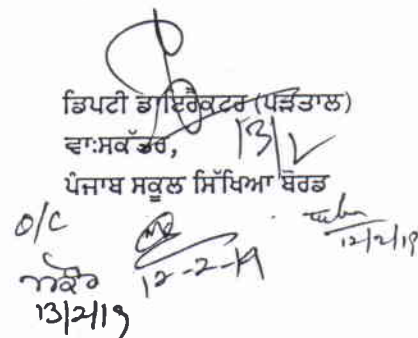 ਡਿਪਟੀ ਡਾਇਰੈਕਟਰ (ਪੜਤਾਲ)
ਵਾ:ਸਕੱਤਰ, 13/2
ਪੰਜਾਬ ਸਕੂਲ ਸਿੱਖਿਆ ਬੋਰਡ
O/C
12/2/19
12-2-19
13/2/19